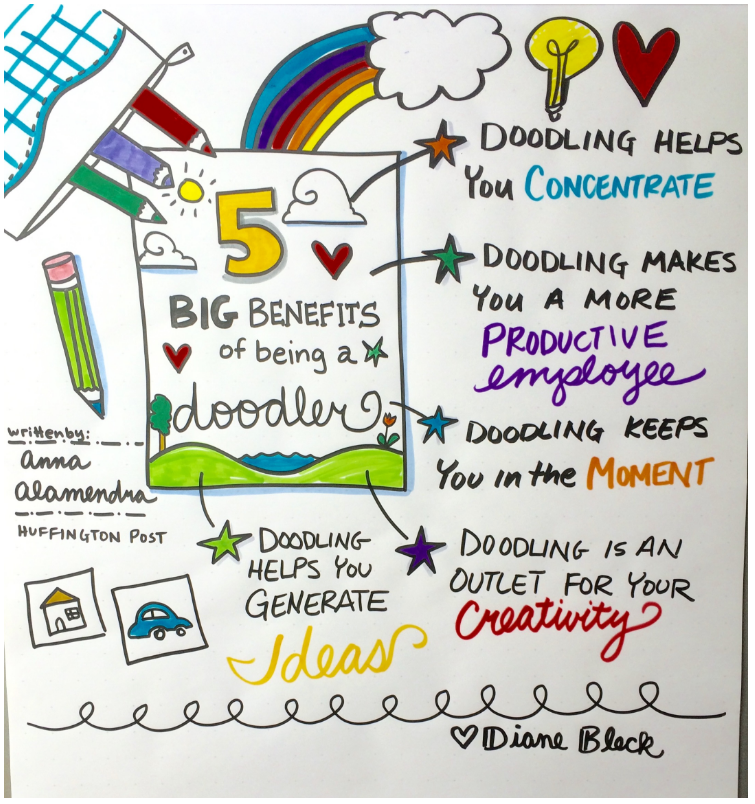 5
BIG BENEFITS
of being a
doodler
DOODLING HELPS
You CONCENTRATE
DOODLING MAKES
You A MORE
PRODUCTIVE
employee
DOODLING KEEPS
You in the MOMENT
DOODLING IS AN
OUTLET FOR YOUR
Creativity
DOODLING
HELPS YOU
GENERATE
Ideas
written by:
anna
alamendra
HUFFINGTON POST
Diane Bleck